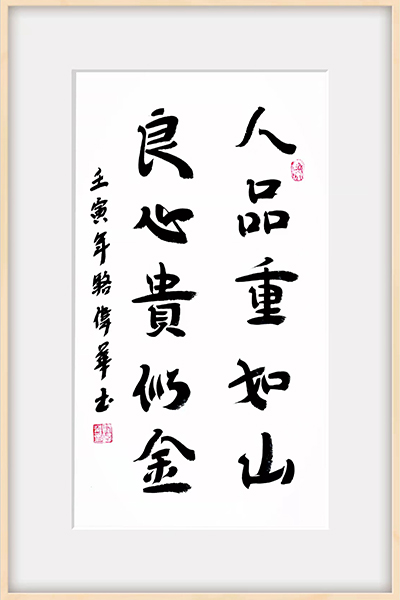 人品重如山
良心貴似金
壬寅年駱偉華书